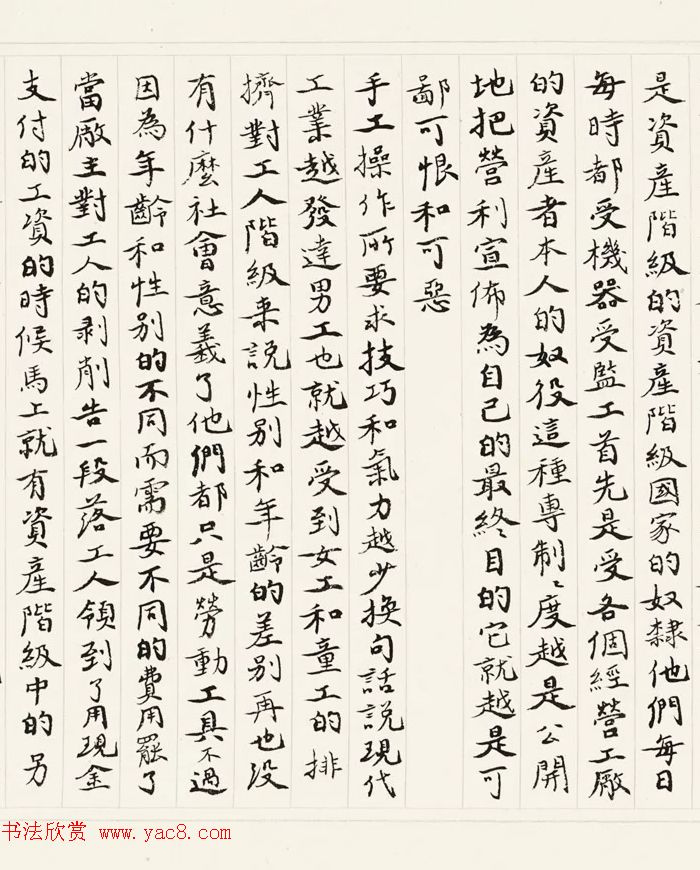 是資產階級的資產階級國家的奴隸他們每日
每時都受機器受監工首先是受各個經營工廠
的資產者本人的奴役這種專制〻度越是公開
地把營利宣佈為自己的最終目的它就越是可
鄙可恨和可惡
手工操作所要求技巧和氣力越少換句話說現代
工業越發達男工也就越受到女工和童工的排
擠對工人階級来說性別和年齡的差別再也没
有什麼社會意義了他們都只是勞動工具不過
因為年齡和性别的不同而需要不同的費用罷了
當廠主對工人的剥削告一段落工人領到了用現金
支付的工資的時候馬上就有資產階級中的另
书法欣赏 www.yac8.com